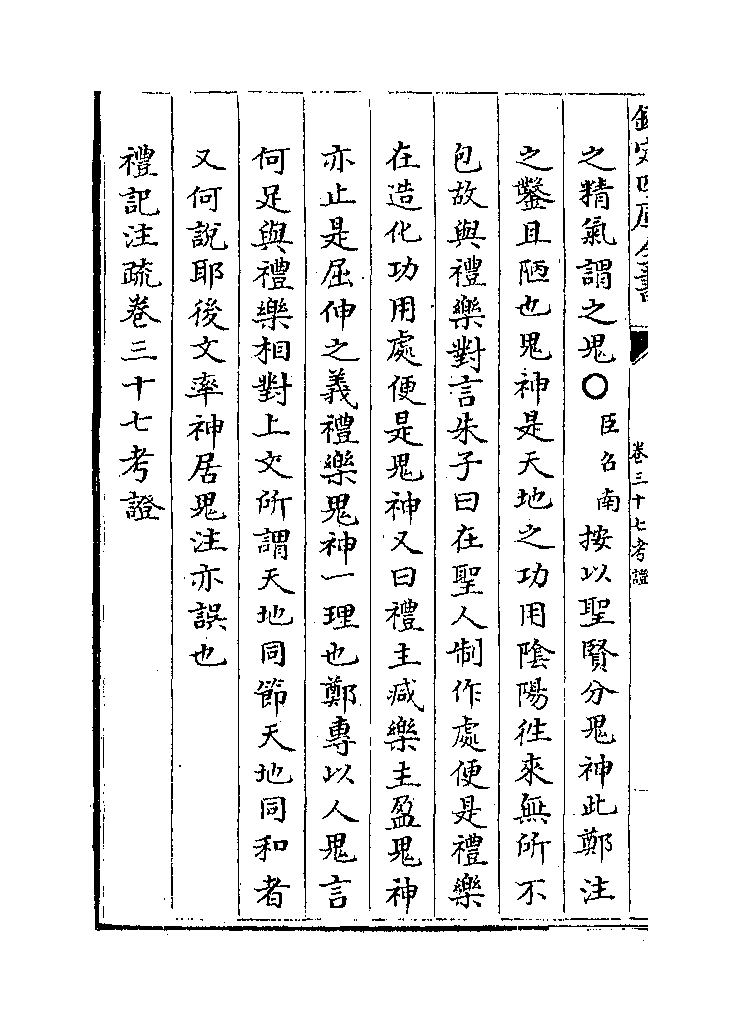 欽定四庫全書
卷三十七考證
之精氣謂之鬼〇臣召南按以聖賢分鬼神此鄭注
之鑿且陋也鬼神是天地之功用陰陽徃來無所不
包故與禮樂對言朱子曰在聖人制作處便是禮樂
在造化功用處便是鬼神又曰禮主減樂主盈鬼神
亦止是屈伸之義禮樂鬼神一理也鄭專以人鬼言
何足與禮樂相對上文所謂天地同節天地同和者
又何說耶後文率神居鬼注亦誤也
禮記注疏卷三十七考證